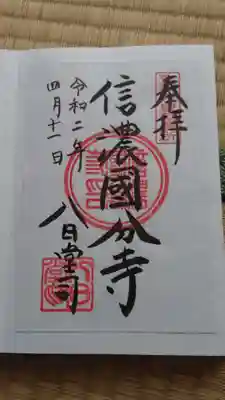 奉拝
信濃國分寺
八日堂司
令和二年
四月十一日